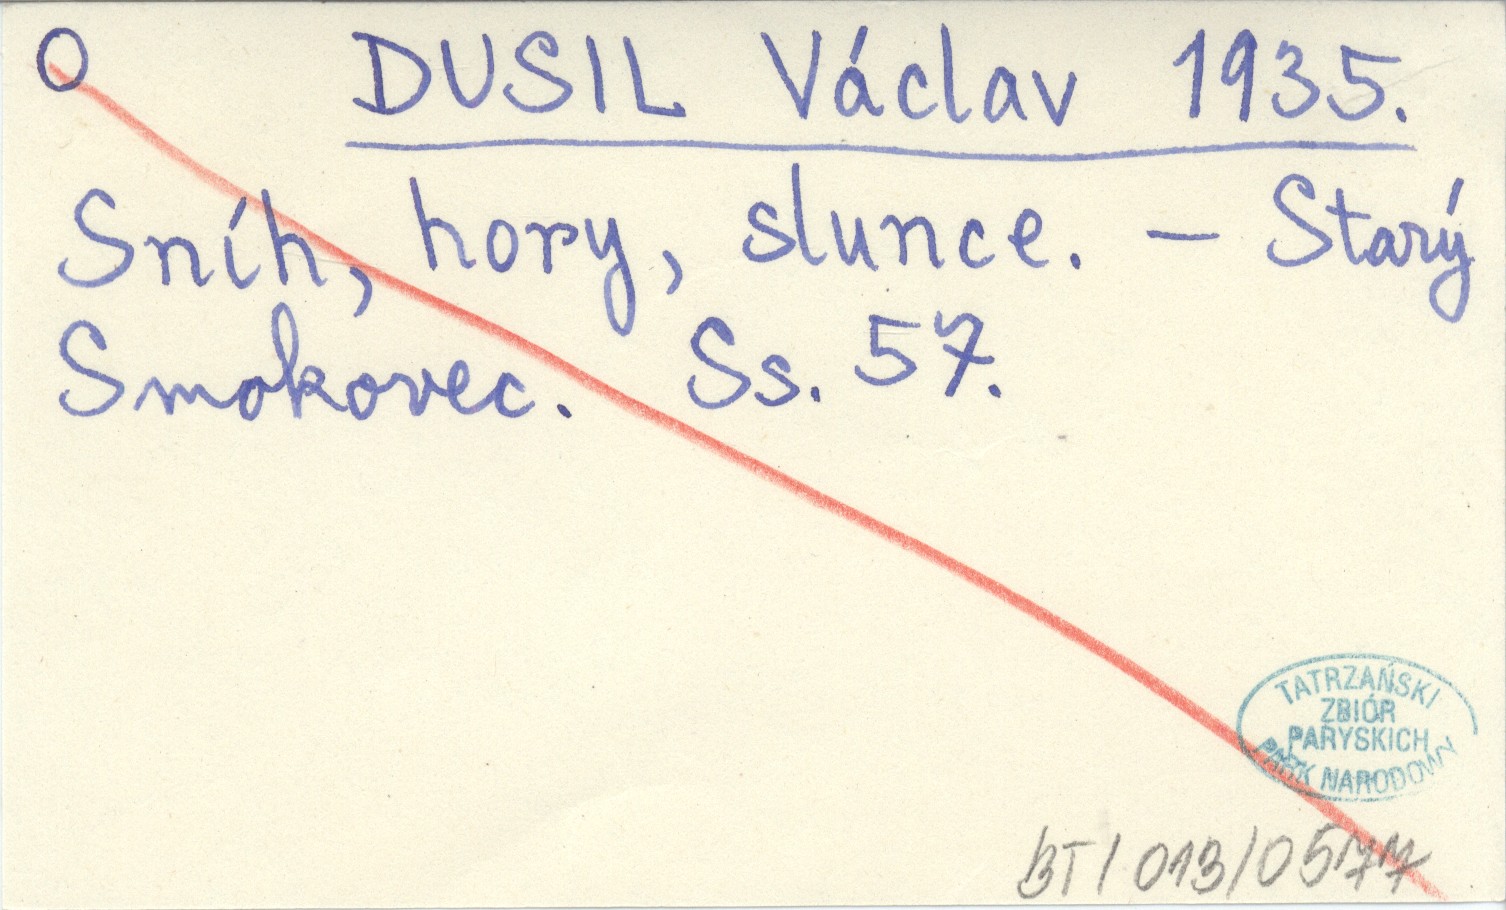 O DUSIL Václav 1935.
Sníh, hory, slunce. – Starý
Smokovec. Ss. 57.
TATRZAŃSKI
ZBIÓR
PARYSKICH
PARK NARODOWY
BT/013/0577